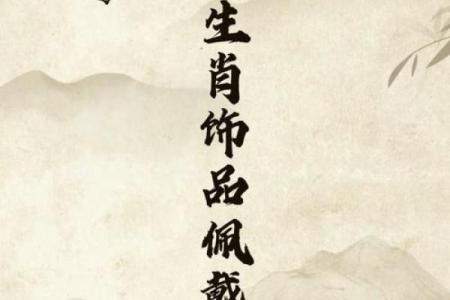 生肖饰品佩戴